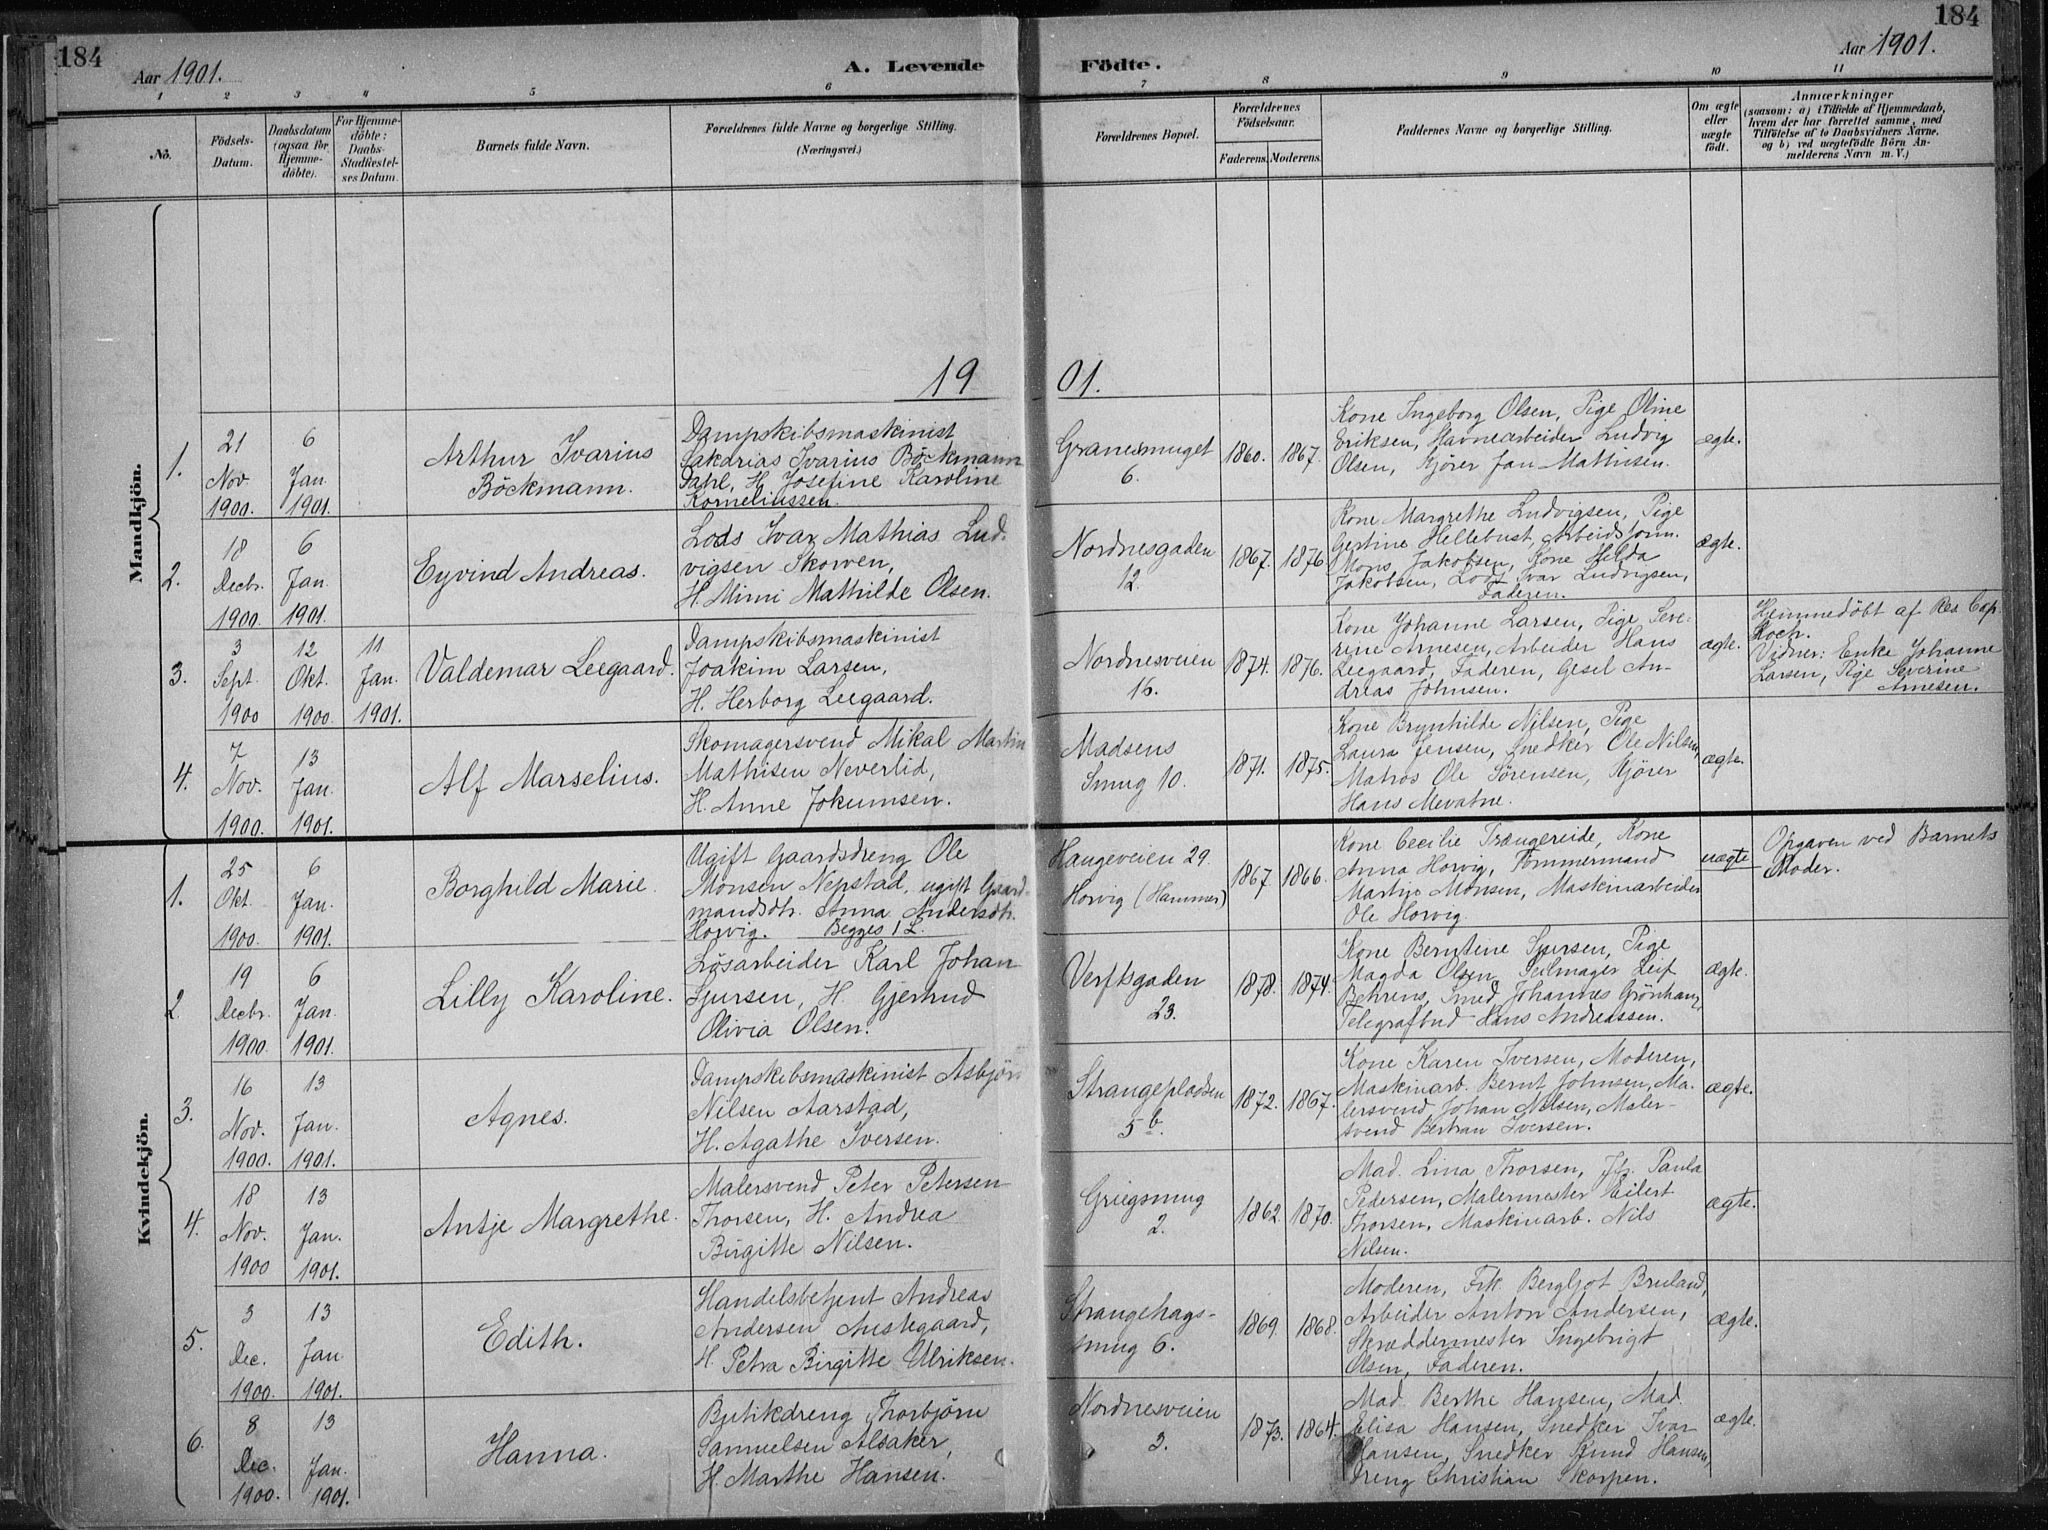 184
184
Aar 1901.
A. Levende Födte.
Aar 1901.
1 2 3 4 5 6 7 8 9 10 11
No.
Födsels-
Datum.
Daabsdatum
(ogsaa for
Hjemme-
döbte).
For Hjemme-
döbte:
Daabs-
Stadfæstel-
ses Datum.
Barnets fulde Navn.
Forældrenes fulde Navne og borgerlige Stilling.
(Næringsvei.)
Forældrenes Bopæl.
Forældrenes
Födselsaar.
Faderens. Moderens.
Faddernes Navne og borgerlige Stilling.
Om ægte
eller
uægte
födt.
Anmærkninger
(saasom: a) i Tilfælde af Hjemmedaab,
hvem der har forrettet samme, med
Tilföielse af to Daabsvidners Navne.
og b) ved uægtefödte Börn An-
melderens Navn m. V.)
1901.
Mandkjön.
1.
21
Nov
1900.
6
Jan.
1901.
Arthur Ivarius
Böckmann.
Dampskibsmaskinist
Sakarias Ivarius Böckmann
Dahl, H. Josefine Karoline
Korneliussen.
Granesmuget
6.
1860. 1867.
Kone Ingeborg Olsen, Pige Oline
Eriksen, Havnearbeider Ludvig
Olsen, Kjører Jan Mathisen.
ægte.
2.
18
Decbr.
1900.
6
Jan.
1901.
Eyvind Andreas.
Lods Ivar Mathias Lud-
vigsen Skowen,
H. Mimi Mathilde Olsen.
Nordnesgaden
12.
1867. 1876
Kone Margrethe Ludvigsen, Pige
Gertine Hellebust, Arbeidsform.
Mons Jakobsen, Kone Hilda
Jakobsen, Lods Ivar Ludvigsen,
Faderen.
ægte.
3.
3
Sept.
1900
12
Okt.
1900.
11
Jan.
1901.
Valdemar Leegaard.
Dampskibsmaskinist
Joakim Larsen,
H. Herborg Leegaard.
Nordnesveien
16.
1874. 1876.
Kone Johanne Larsen, Pige Seve-
rine Arnesen, Arbeider Hans
Leegaard, Faderen, Gesel An-
dreas Johnsen.
ægte.
Hjemmedöbt af Res. Cap.
Koch.
Vidner: Enke Johanne
Larsen, Pige Severine
Arnesen.
4.
7
Nov.
1900.
13
Jan.
1901.
Alf Marselius.
Skomagersvend Mikal Martin
Mathisen Neverlid,
H. Anne Jokumsen.
Madsens
Smug 10.
1871. 1875.
Kone Brynhilde Nilsen, Pige
Laura Jensen, Snedker Ole Nilsen,
Matros Ole Sørensen, Kjører
Hans Mevatne.
ægte.
Kvindekjön.
1.
25
Okt.
1900.
6
Jan.
1901.
Borghild Marie.
Ugift Gaardsdreng Ole
Monsen Nepstad, ugift Gaard-
mandsdtr. Anna Andersdtr.
Horvig. Begges 1 L.
Haugeveien 29.
Horvig (Hammer)
1867. 1866.
Kone Cecilie Trængereide, Kone
Anna Horvig, Tømmermand
Martin Monsen, Maskinarbeider
Ole Horvig
uægte
Opgaven ved Barnets
Moder.
2
19
Decbr.
1900.
6
Jan.
1901.
Lilly Karoline.
Løsarbeider Karl Johan
Sjursen, H. Gjertrud
Olivia Olsen.
Verftsgaden
23.
1878. 1874.
Kone Berntine Sjursen, Pige
Magda Olsen, Seilmager Leif
Behrens, Smed Johannes Grönhaug,
Telegrafbud Hans Andreassen.
ægte.
3.
16
Nov.
1900.
13
Jan.
1901.
Agnes.
Dampskibsmaskinist Asbjørn
Nilsen Aarstad,
H. Agathe Iversen.
Strangepladsen
5 b.
1872. 1867.
Kone Karen Iversen, Moderen,
Maskinarb. Bernt Johnsen, Ma-
lersvend Johan Nilsen, Maler-
svend Bertran Iversen.
ægte.
4.
18
Nov.
1900
13
Jan.
1901.
Antje Margrethe.
Malersvend Peter Petersen
Thorsen, H. Andrea
Birgitte Nilsen.
Griegsmug
2.
1862 1870.
Mad. Lina Thorsen, Jfr. Paula
Pedersen, Malermester Eilert
Thorsen, Maskinarb. Nils
Nilsen.
ægte.
5.
3
Dec.
1900.
13
Jan
1901.
Edith.
Handelsbetjent Andreas
Andersen Austegaard,
H. Petra Birgitte Ulriksen.
Strangehags-
smug 6.
1869. 1868.
Moderen, Frk. Bergljot Bruland,
Arbeider Anton Andersen,
Skræddermester Ingebrigt
Olsen, Faderen.
ægte.
6.
8
Dec.
1900.
13
Jan.
1901.
Hanna.
Butikdreng Thorbjørn
Samuelsen Alsaker,
H. Marthe Hansen.
Nordnesveien
3.
1873. 1864.
Mad. Berthe Hansen, Mad.
Elisa Hansen, Snedker Ivar
Hansen, Snedker Knud Hansen,
Dreng Christian Skorpen.
ægte.